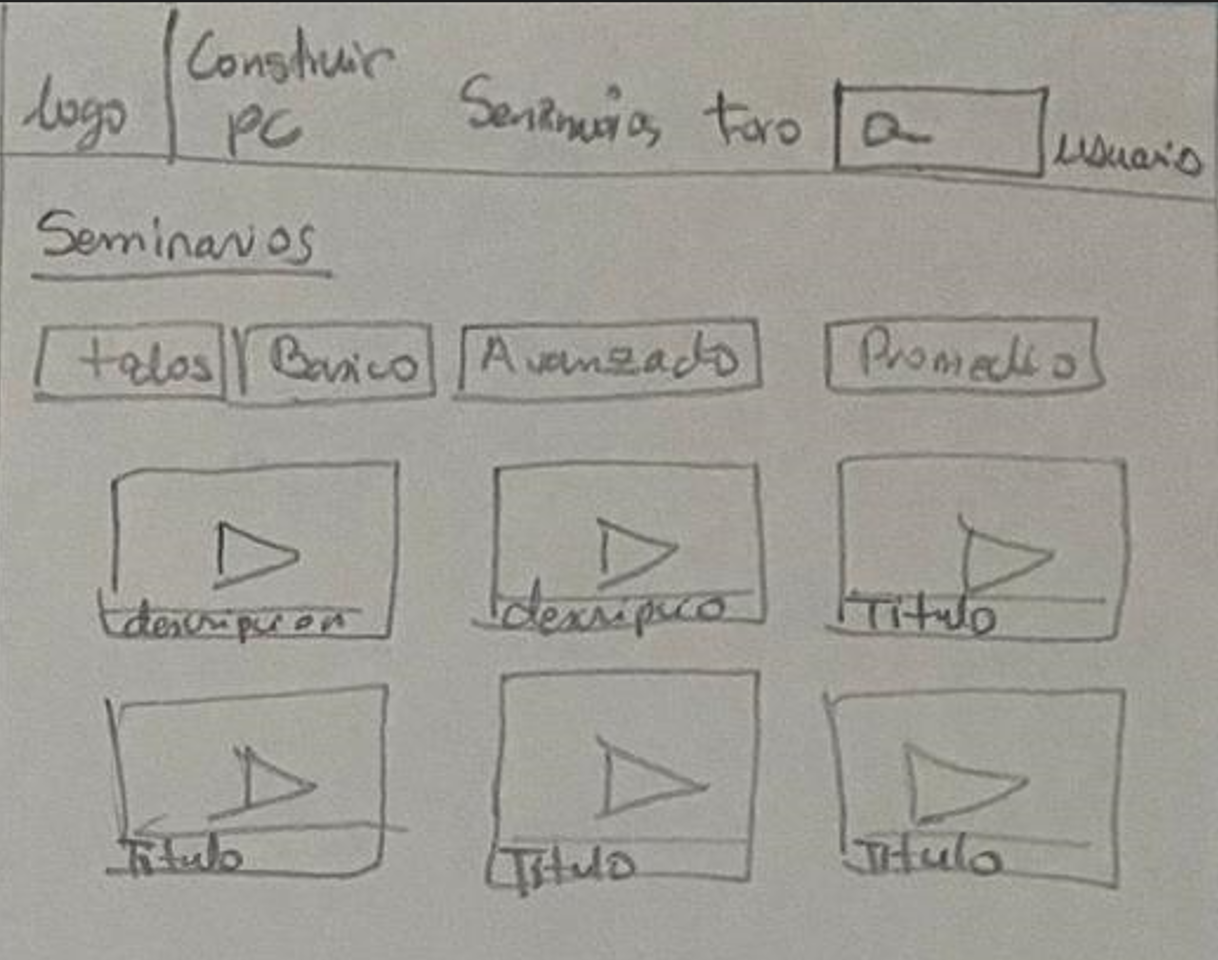 Logo
Construir
PC
Seminarios
Foro
usuario
Seminarios
todos
Basico
Avanzado
Promedio
descripcion
descripcio
Titulo
Titulo
Titulo
Titulo